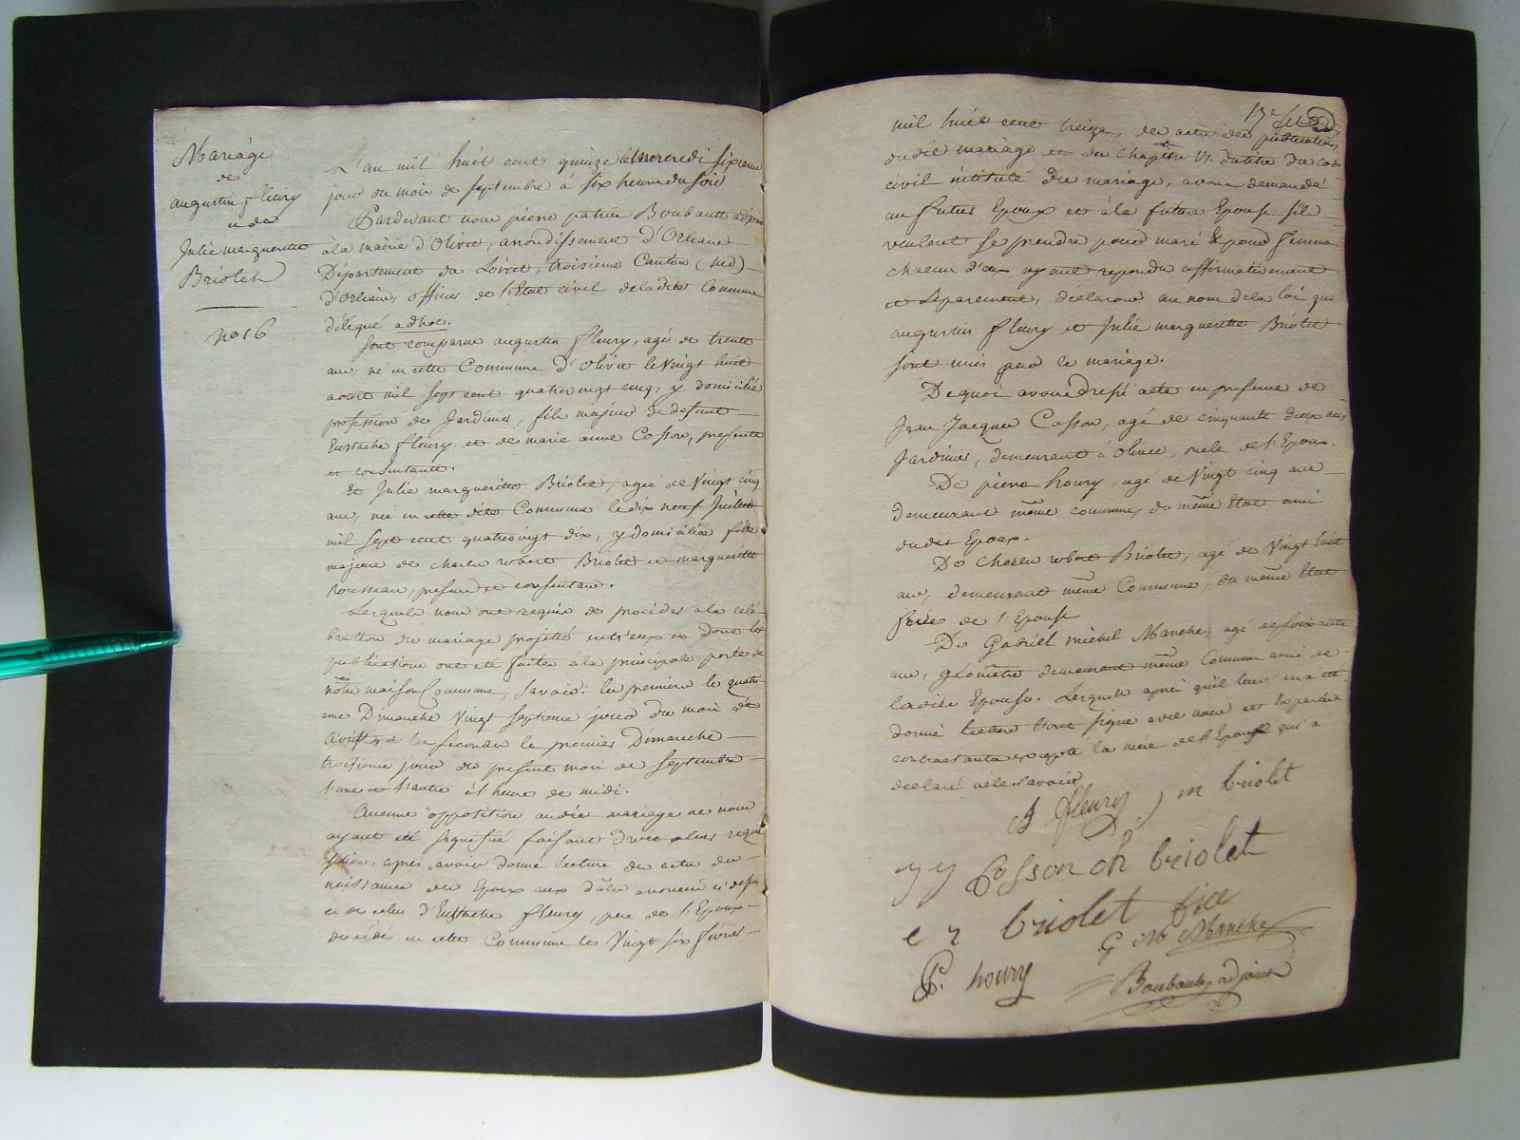 Mariage
de
augustin fleury
et de
Julie marguerite
Briolet
no 16
L'an mil huit cent quinze le mercredi sixieme
jour du mois de septembre à six heures du soir
Pardevant nous pierre patrice Boubault adjoint
à la mairie d'Olivet, arrondissement d'Orleans
Département du Loiret, troisieme Canton (sud)
d'Orléans, officier de l'Etat civil de ladite Commune
délégué adhoc.
Sont comparus augustin fleury, agé de trente
ans né en cette Commune d'Olivet le Vingt huit
aout mil sept cent quatrevingt cinq, y domicilié
profession de Jardinier, fils majeur de defunt
Eustache fleury et de marie anne Cosson, presente
et consentante.
Et Julie marguerite Briolet, agée de Vingt cinq
ans, née en cette dite Commune le dix neuf Juillet
mil sept cent quatrevingt dix, y domiciliée fille
majeure de charles robert Briolet et marguerite
rousseau, presens et consentans.
Lesquels nous ont requis de proceder à la celé-
bration du mariage projetté entr'eux et dont les
publications ont été faites à la principale porte de
notre maison Commune, savoir: la premiere le quatri-
eme Dimanche Vingt septieme jour du mois d'
Aoust et la seconde le premier Dimanche
troisieme jour du present mois de septembre
l'une et l'autre à l'heure de midi.
Aucune opposition audit mariage ne nous
ayant été signifiée faisant droit à leur requi-
sition, après avoir donné lecture des actes de
naissance des Epoux
et de celui d'Eustache fleury, pere de l'Epoux
decédé en cette Commune le Vingt six fevrier
mil huit cent treize, des actes des publications
dudit mariage et du Chapitre VI. du titre du code
civil intitulé du mariage, avons demandé
au futur Epoux et à la future Epouse s'ils
veulent se prendre pour mari & pour femme
chacun d'eux ayant repondu affirmativement
et separement, declarons au nom de la loi que
augustin fleury et Julie marguerite Briolet
sont unis par le mariage.
De quoi avons dressé acte en presence de
Jean Jacques Cosson, agé de cinquante deux ans,
Jardinier, demeurant à Olivet, oncle de l'Epoux.
De pierre houry, agé de Vingt cinq ans
demeurant même commune, du même Etat ami
dudit Epoux.
De Charles robert Briolet, agé de Vingt huit
ans, demeurant même Commune, du même Etat
frere de l'Epouse
De Gabriel michel Manche, agé de soixante
ans, géometre demeurant même Commune ami de
ladite Epouse. Lesquels après qu'il leur en a été
donné lecture l'ont signé avec nous et les parties
contractantes excepté la mere de l'Epouse qui a
declaré ne le savoir
A fleury J m briolet
J J Cosson Ch briolet
C r briolet fils
G M Manche
P. houry
Boubault, adjoint